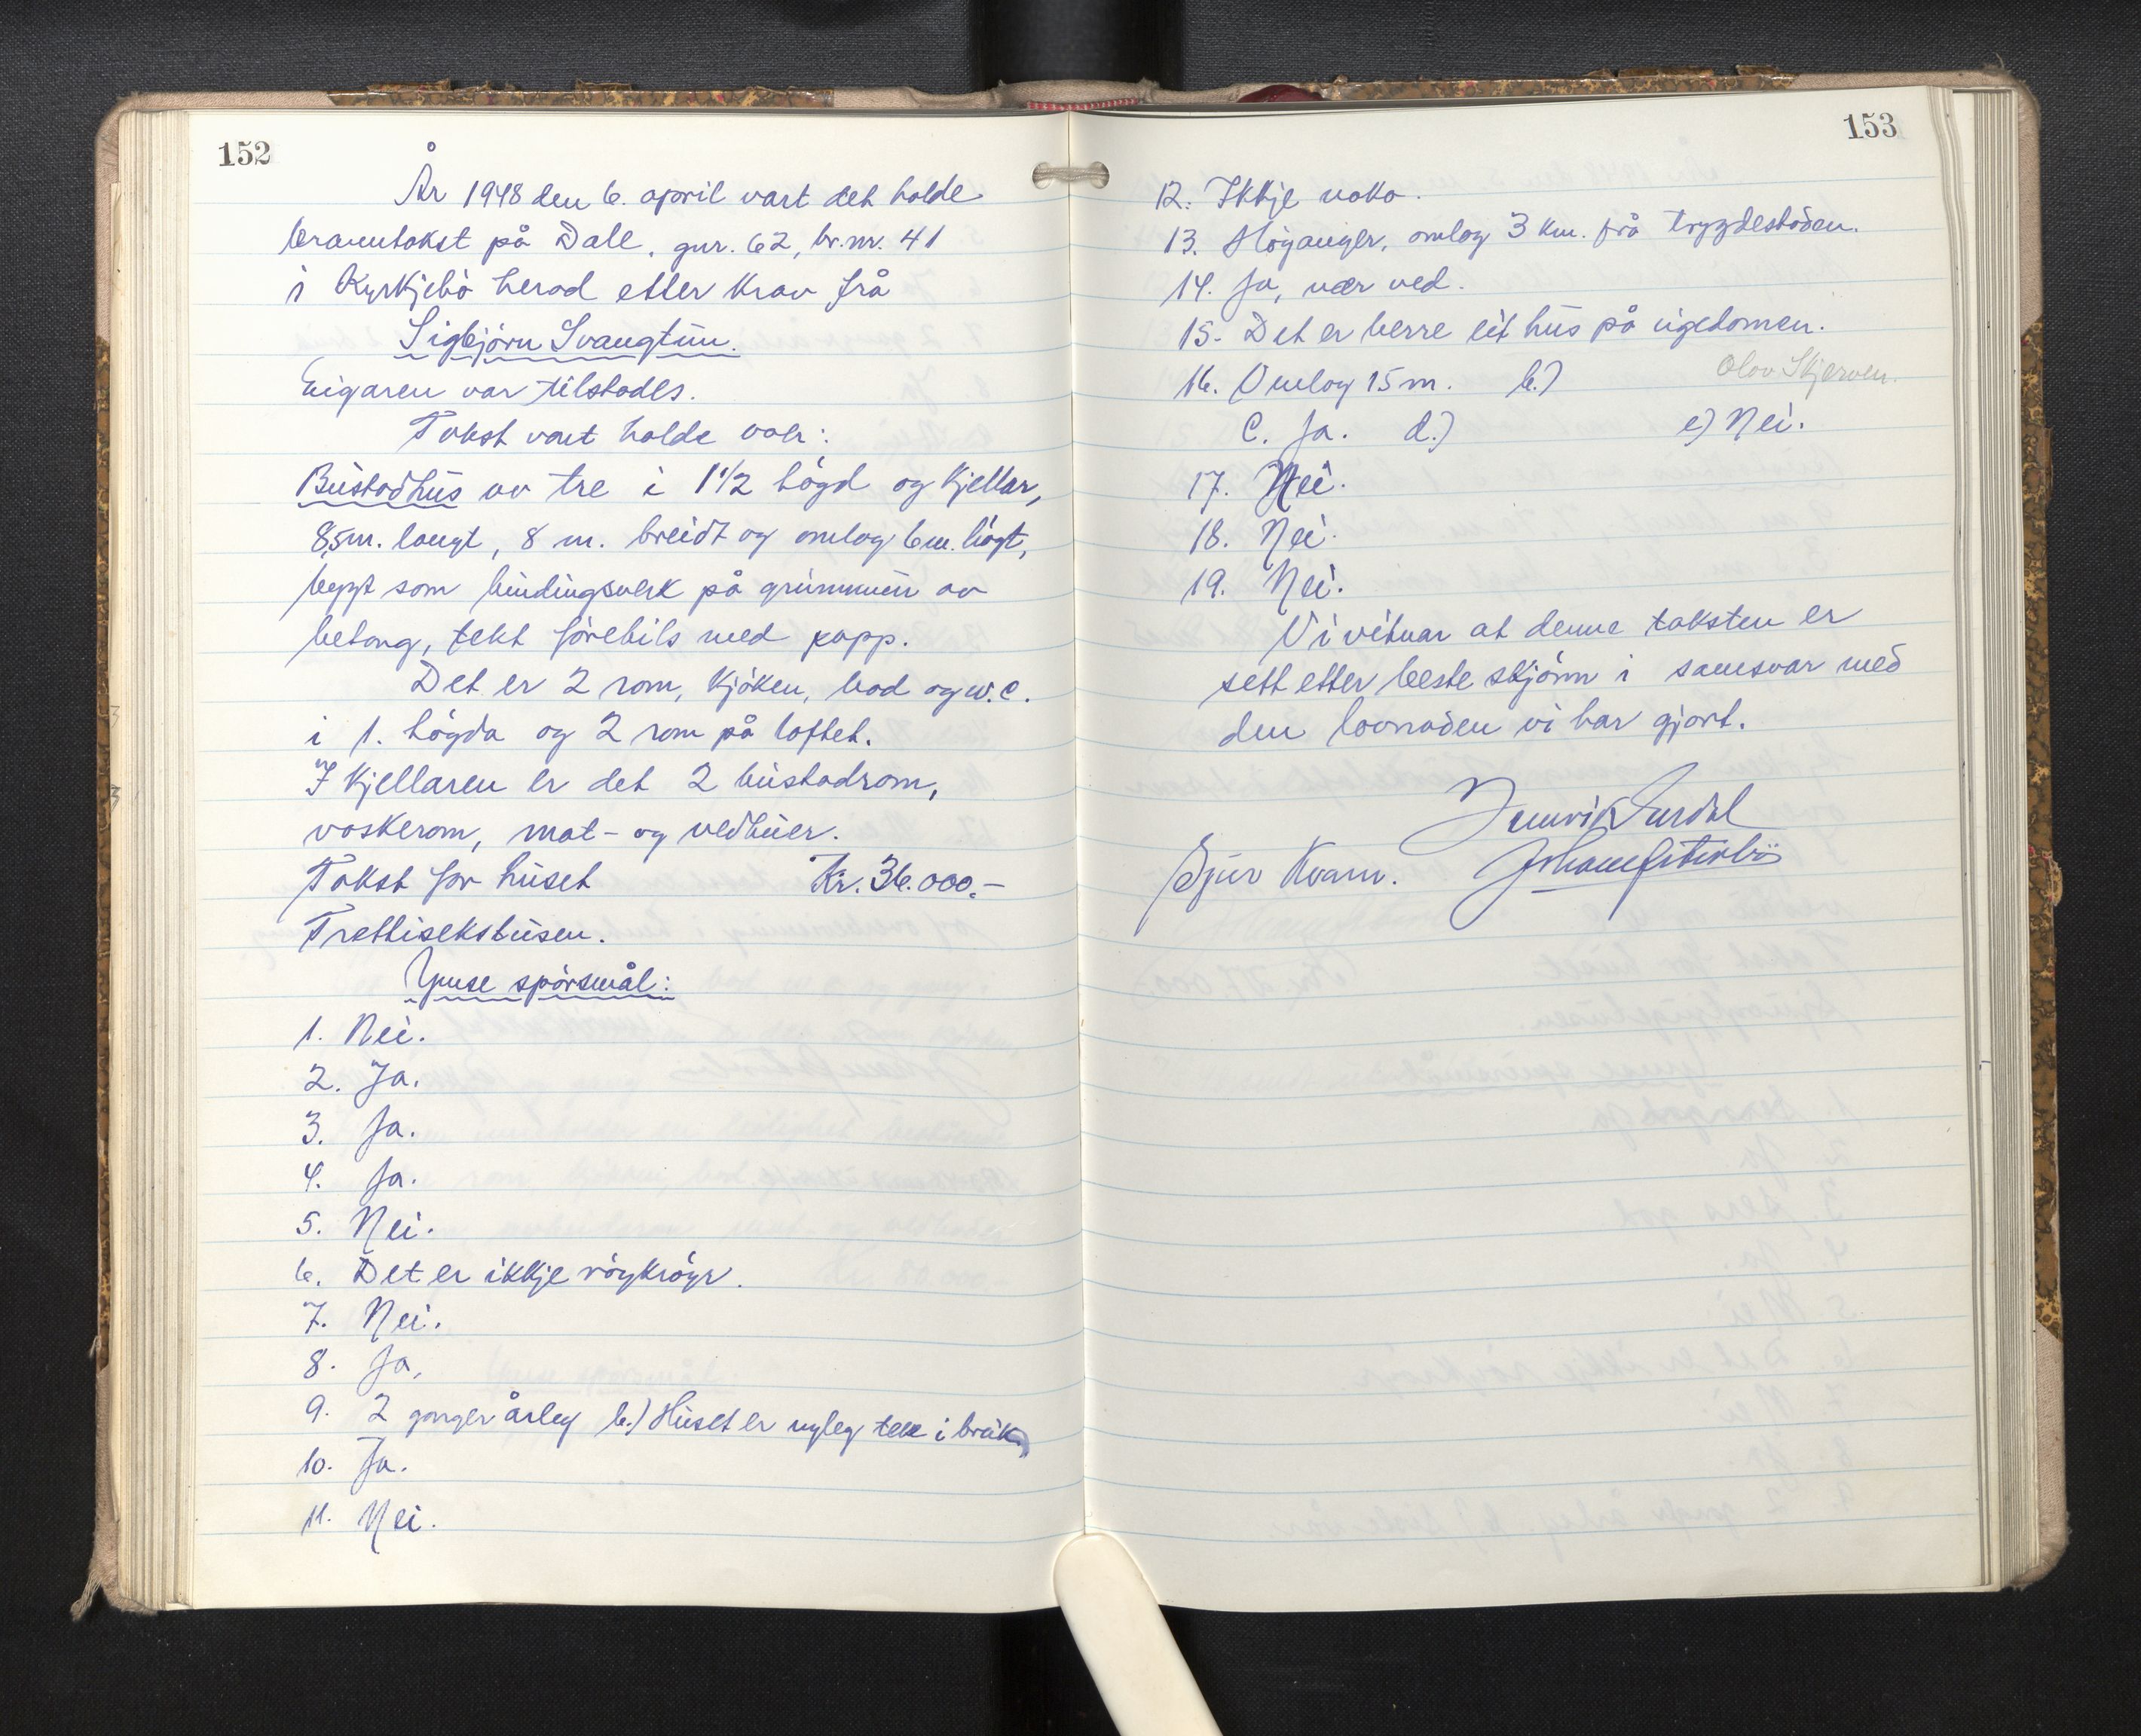 152
År 1948 den 6. april vart det halde
branntakst på Dale, gnr. 62, br.nr. 41
i Kyrkjebö herad etter krav frå
Sigbjörn Svangtun.
Eigaren var tilstades.
Takst vart halde over:
Bustadhus av tre i 1 1/2 högd og kjellar,
8,5 m. langt, 8 m. breidt og omlag 6 m. högt,
bygt som bindingsverk på grunnmur av
betong, tekt förebils med papp.
Det er 2 rom, kjöken, bod og w.c.
i 1. högda og 2 rom på loftet.
I kjellaren er det 2 bustadrom,
vaskerom, mat- og vedbuer.
Takst for huset Kr. 36.000.-
Trettisekstusen.
Ymse spörsmål:
1. Nei.
2. Ja.
3. Ja.
4. Ja.
5. Nei.
6. Det er ikkje röykröyr.
7. Nei.
8. Ja,
9. 2 gonger årleg b.) Huset er nyleg teke i bruk.
10. Ja.
11. Nei.
153
12. Ikkje noko.
13. Höyanger, omlag 3 km. frå trygdestaden.
14. Ja, nær ved.
15. Det er berre eit hus på eigedomen.
16. Omlag 15 m. b.) Olav Skjerven.
C. Ja. d.) e) Nei.
17. Nei.
18. Nei.
19. Nei.
Vi vitnar at denne taksten er
sett etter beste skjönn i samsvar med
den lovnaden vi har gjort.
Henrik
Sjur Kvam. Johan